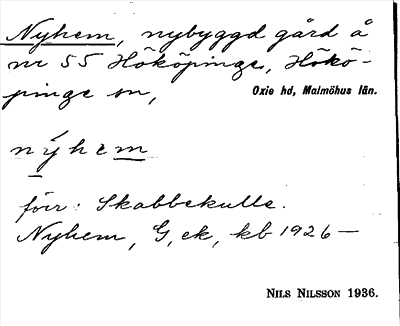 Nyhem, nybyggd gård å
nr 55 Hököpinge, Hökö-
pinge sn, Oxie hd, Malmöhus län.
nýhem
förr: Skabbekulle.
Nyhem, G, ek, kb 1926—
NILS NILSSON 1936.